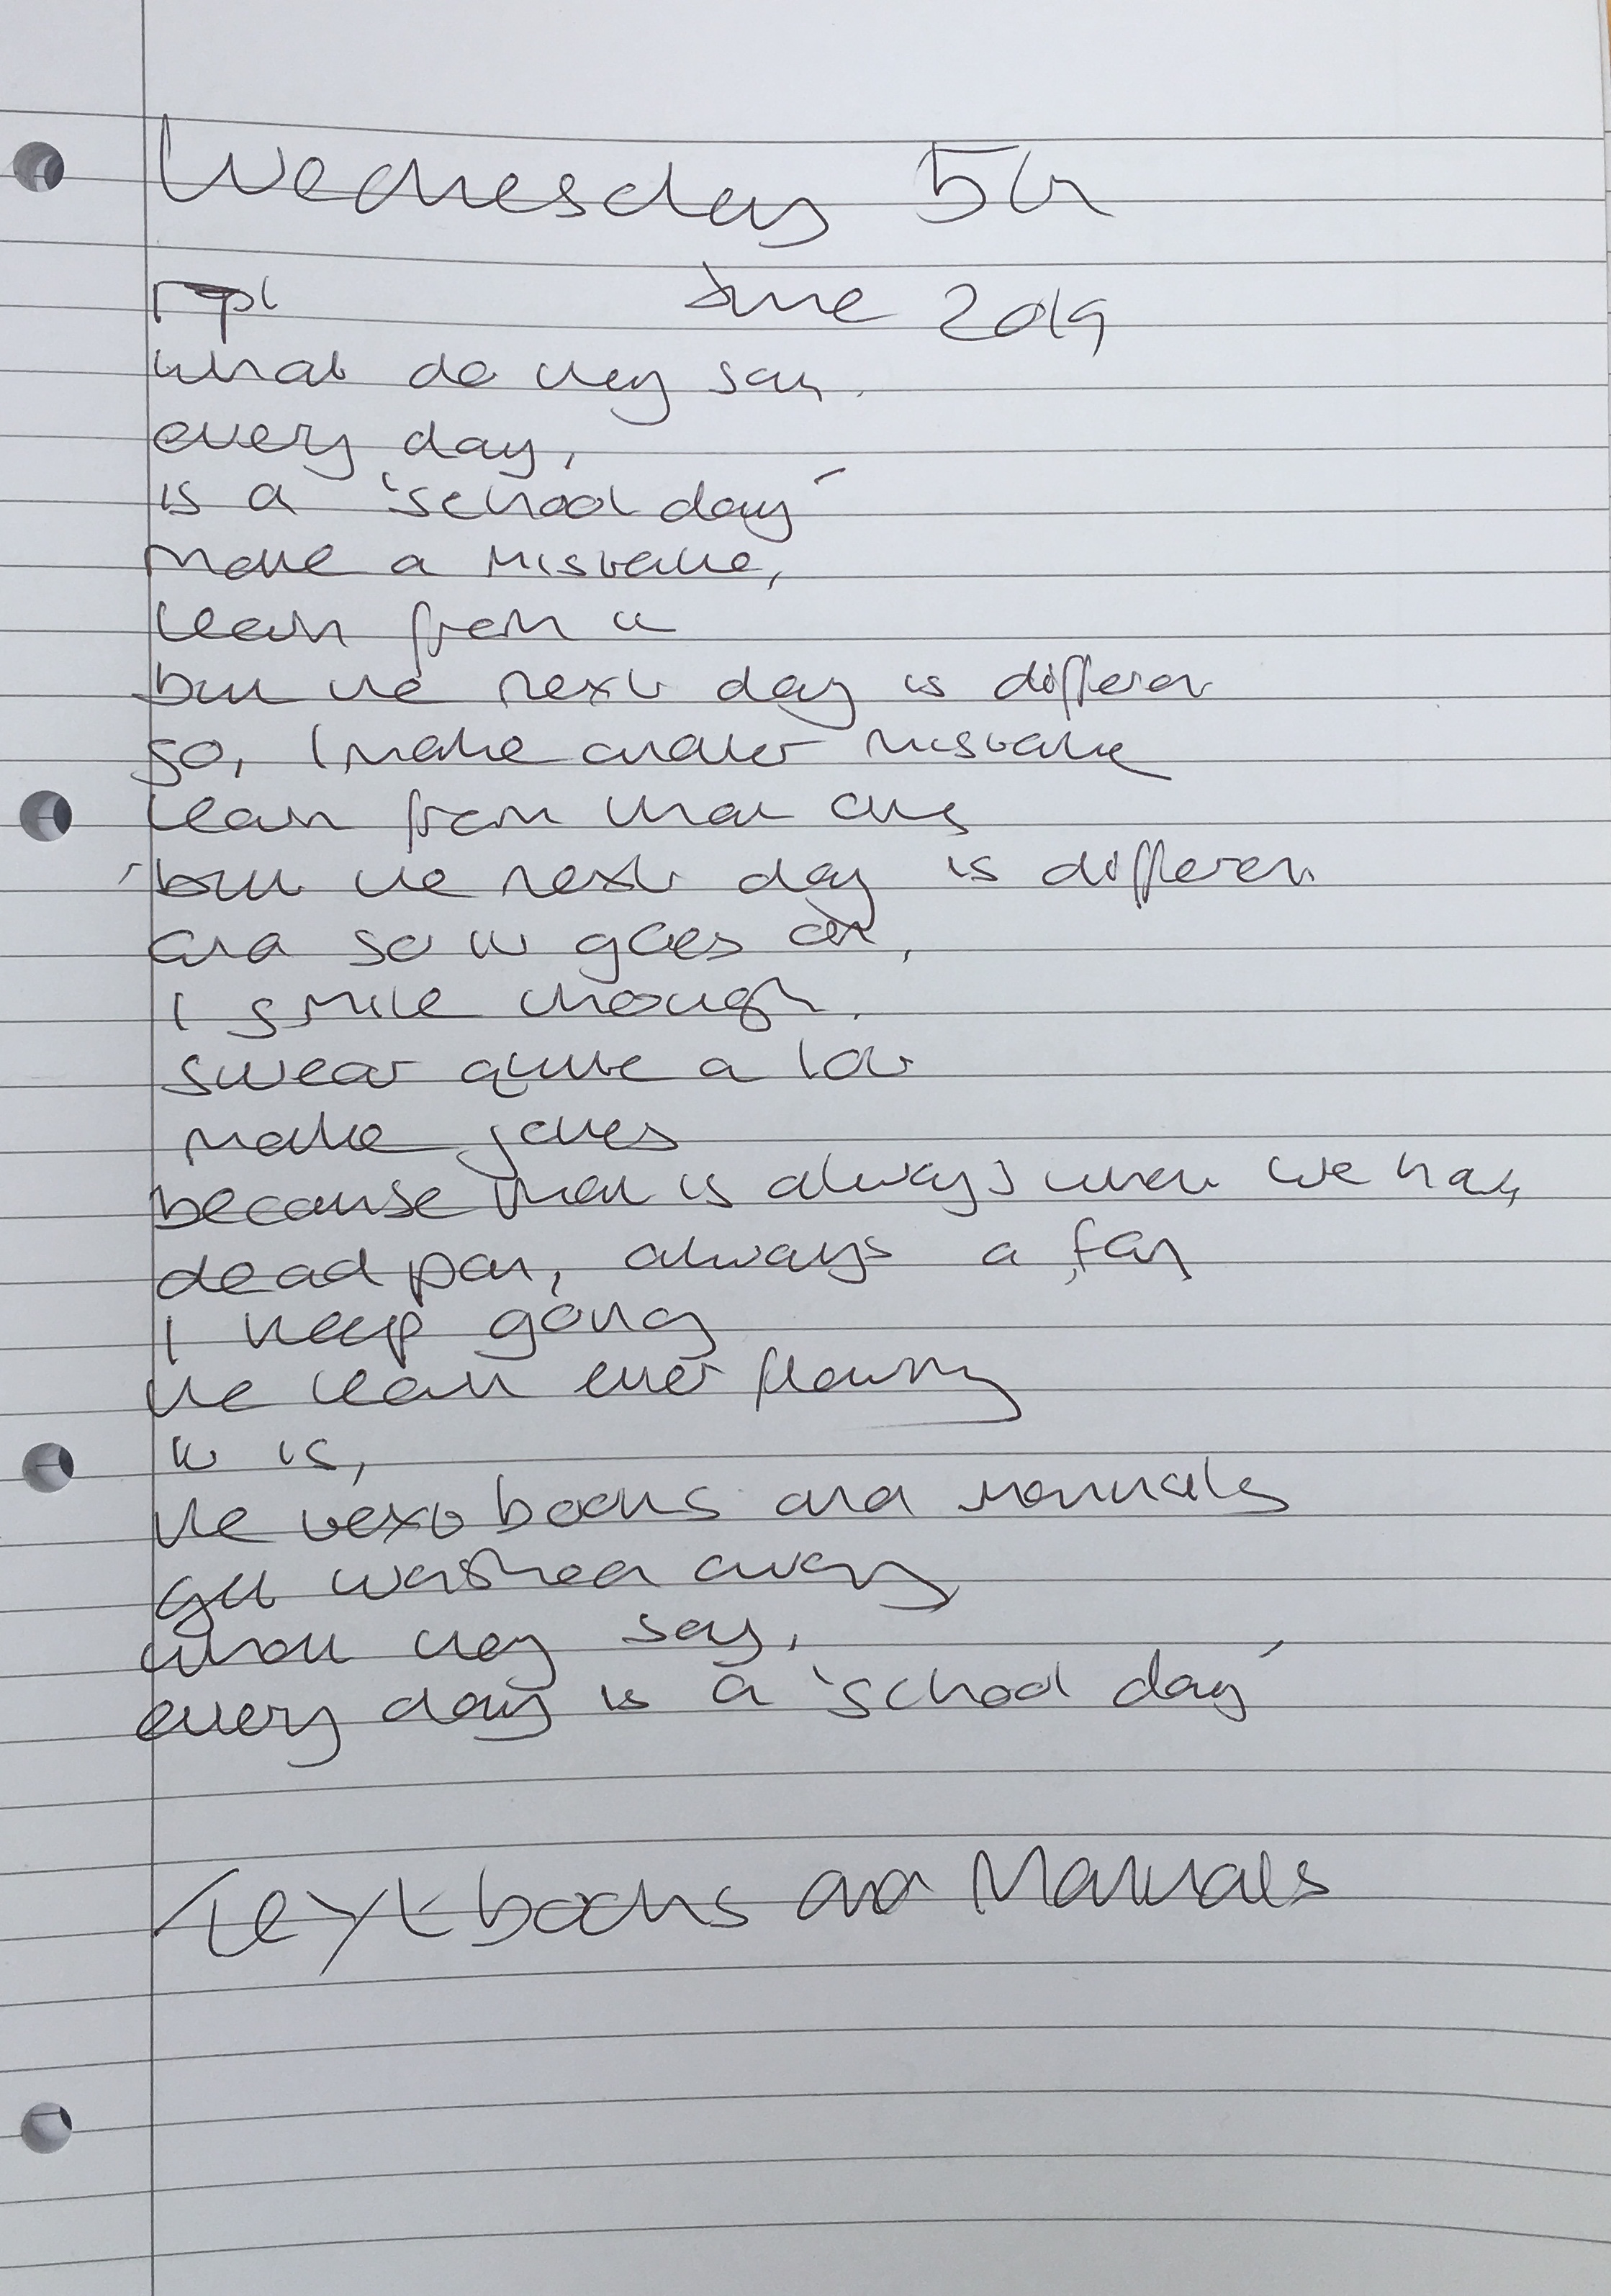 Wednesday 5th
June 2019
what do they say.
every day,
is a 'school day'
make a mistake,
learn from it
but the next day is different
so, I make another mistake
learn from that one
'but the next day is different
and so it goes on,
I smile though.
swear quite a lot
make jokes
because that is always what we have
dead pan, always a fan
I keep going
the learn ever flowing
it is,
the text books and manuals
get washed away
what they say,
every day is a 'school day'
Textbooks and Manuals